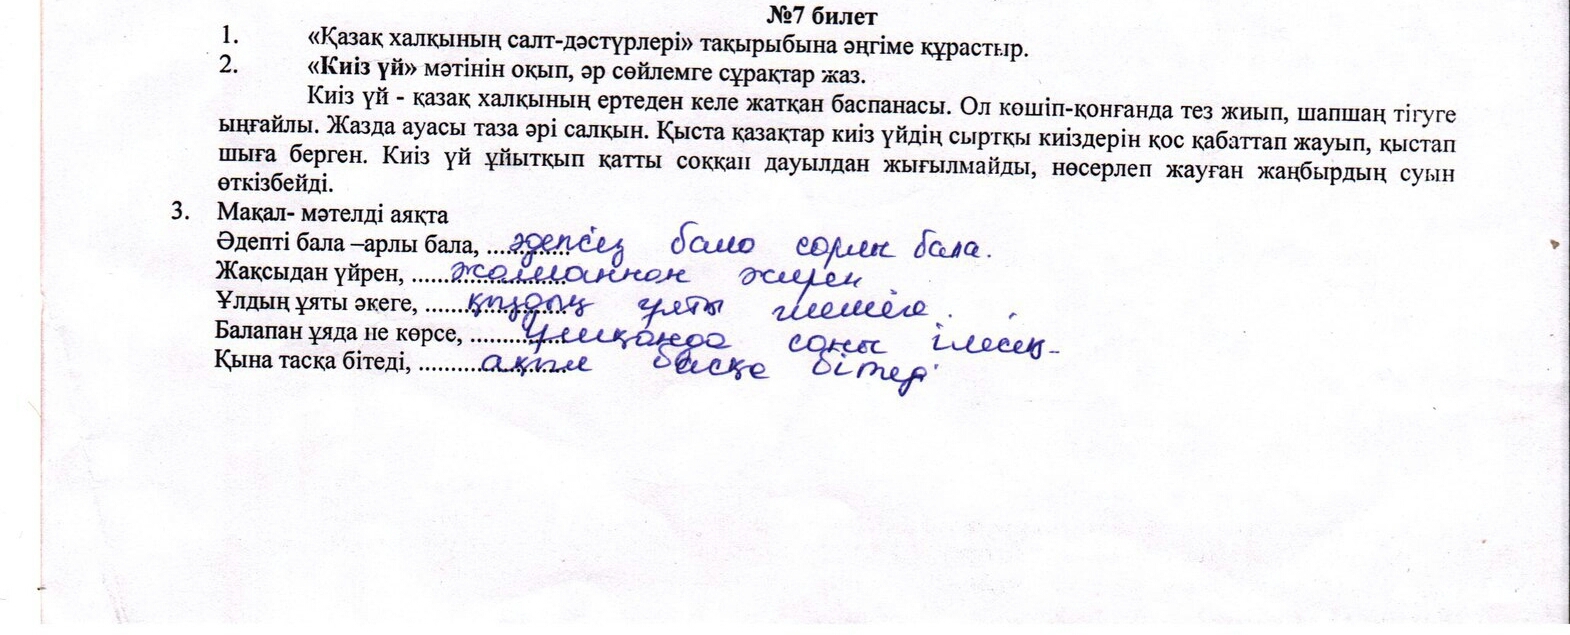 №7 билет
1. «Қазақ халқының салт-дәстүрлері» тақырыбына әңгіме құрастыр.
2. «Киіз үй» мәтінін оқып, әр сөйлемге сұрақтар жаз.
Киіз үй - қазақ халқының ертеден келе жатқан баспанасы. Ол көшіп-қонғанда тез жиып, шапшаң тігуге
ыңғайлы. Жазда ауасы таза әрі салқын. Қыста қазақтар киіз үйдің сыртқы киіздерін қос қабаттап жауып, қыстап
шыға берген. Киіз үй ұйытқып қатты соққан дауылдан жығылмайды, нөсерлеп жауған жаңбырдың суын
өткізбейді.
3. Мақал- мәтелді аяқта
Әдепті бала –арлы бала, ............ әдепсіз бала сорлы бала.
Жақсыдан үйрен, ...................... жаманнан жирен
Ұлдың ұяты әкеге, ................... қыздың ұяты шешеге.
Балапан ұяда не көрсе, ............. ұшқанда соны ілесің
Қына тасқа бітеді, .................... ақыл басқа бітеді